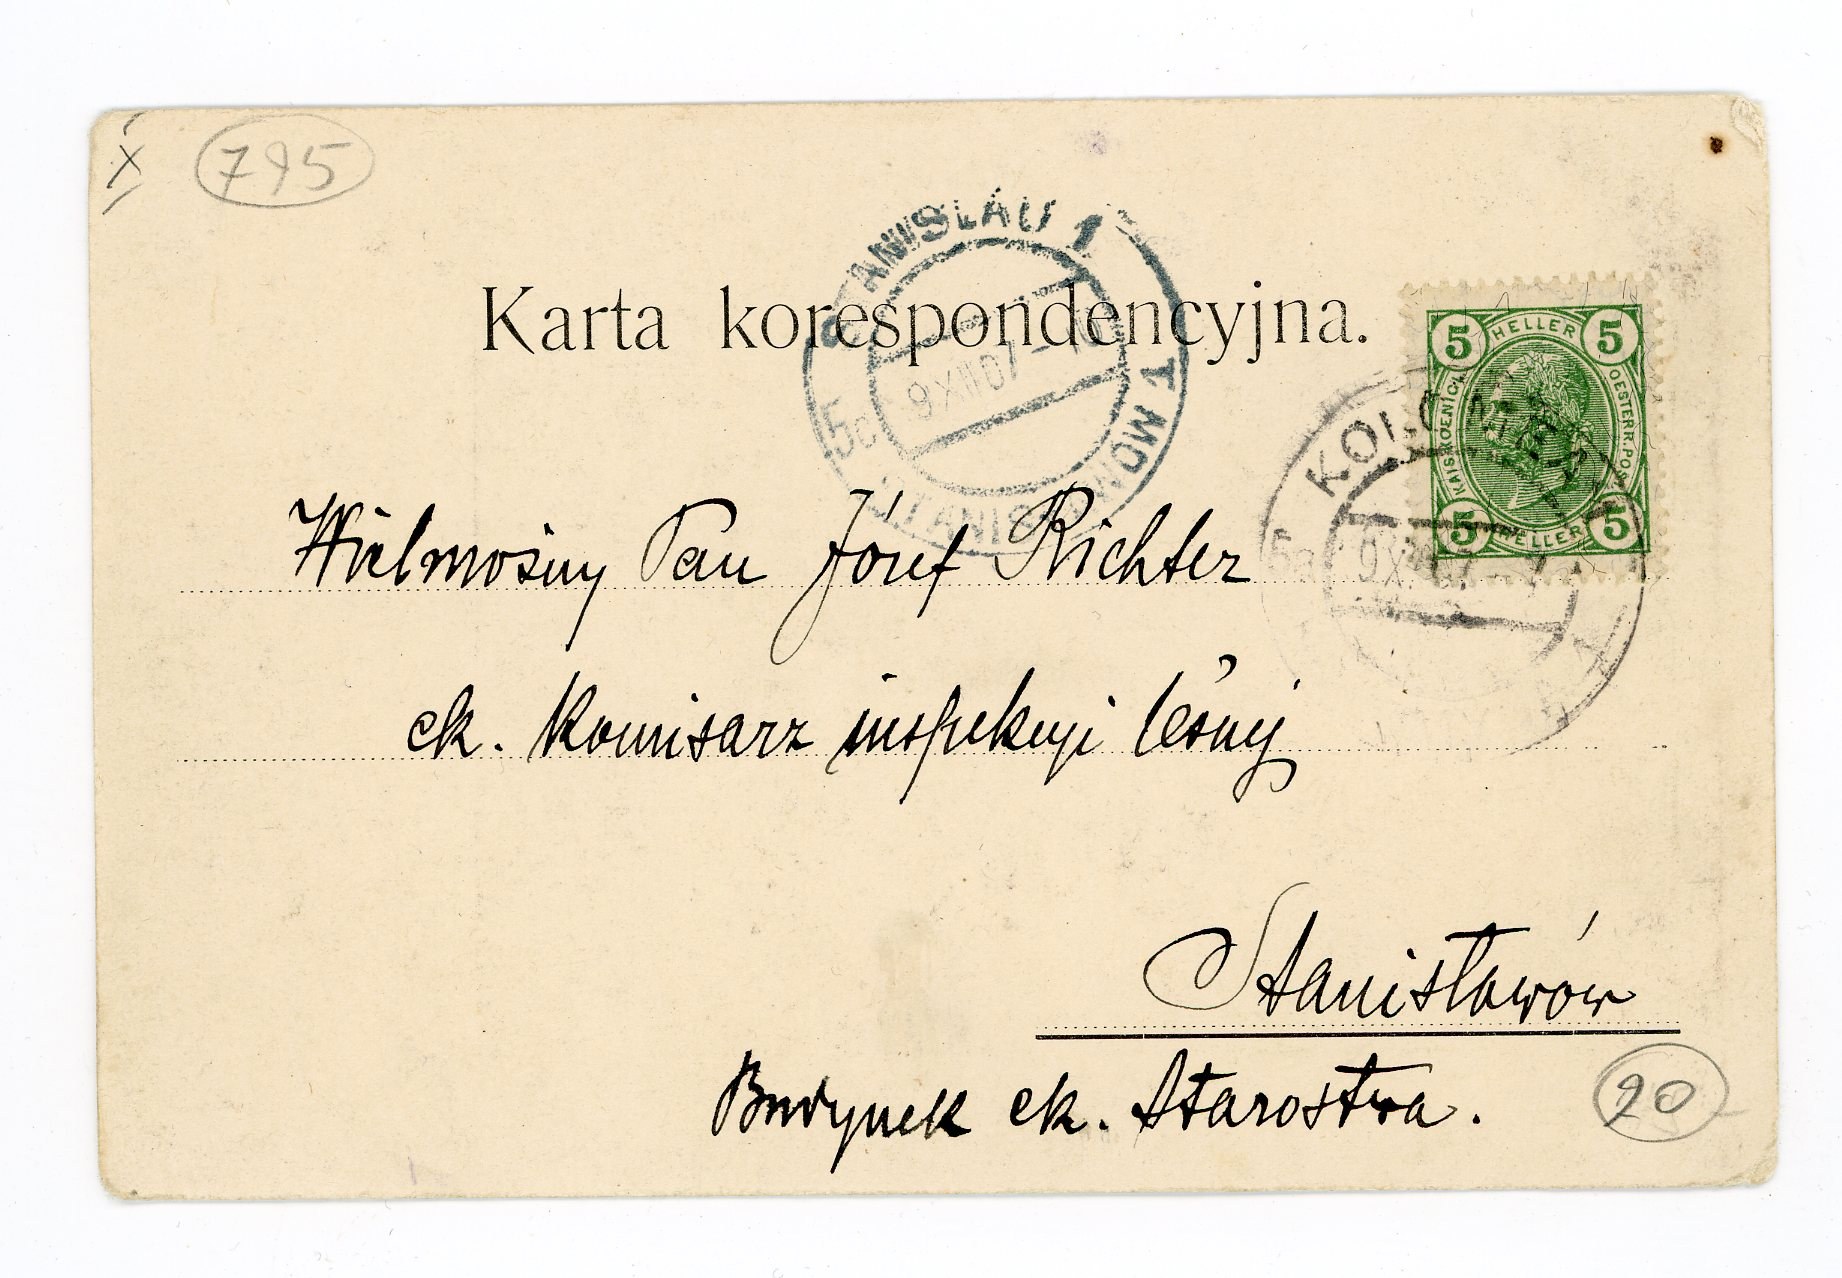 x
795
STANISLAU 1
STANISŁAWÓW 1
5a
9 XII 07
Karta korespondencyjna.
5 HELLER 5
KAIS.KOENIGL.
OESTERR.POST
5 HELLER 5
KOLOMEA
5a
9 XII 07
Wielmożny Pan Józef Richter
ck. Komisarz inspekcyi leśnej
Stanisławów
Budynek ck. Starostwa.
20